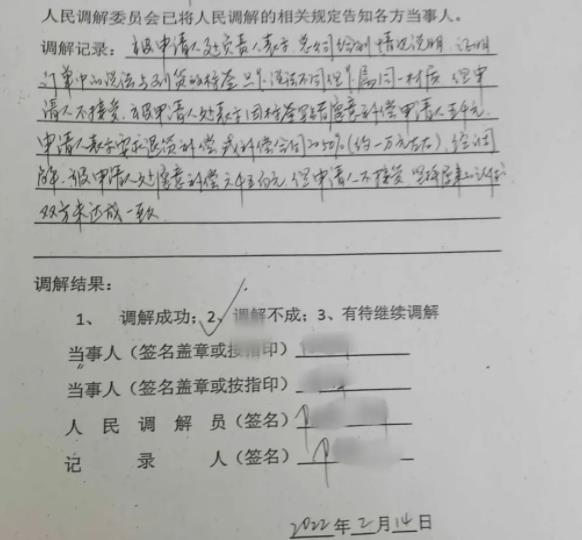 人民调解委员会已将人民调解的相关规定告知各方当事人。
调解记录：被申请人处负责人表示总公司给到情况说明，证明
订单中的说法与到货的标签只是说法不同但是属同一材质，但申
请人不接受，被申请人处表示因标签写错愿意补偿申请人五千元，
申请人表示要求退货补偿或补偿合同的50%（约一万元左右），经调
解，被申请人处愿意补偿六千五百元，但申请人不接受，坚持原来的
双方未达成一致
调解结果：
1、 调解成功；2、调解不成；3、有待继续调解
当事人（签名盖章或按指印）
当事人（签名盖章或按指印）
人 民 调 解 员（签名）
记 录 人（签名）
2022年2月14日